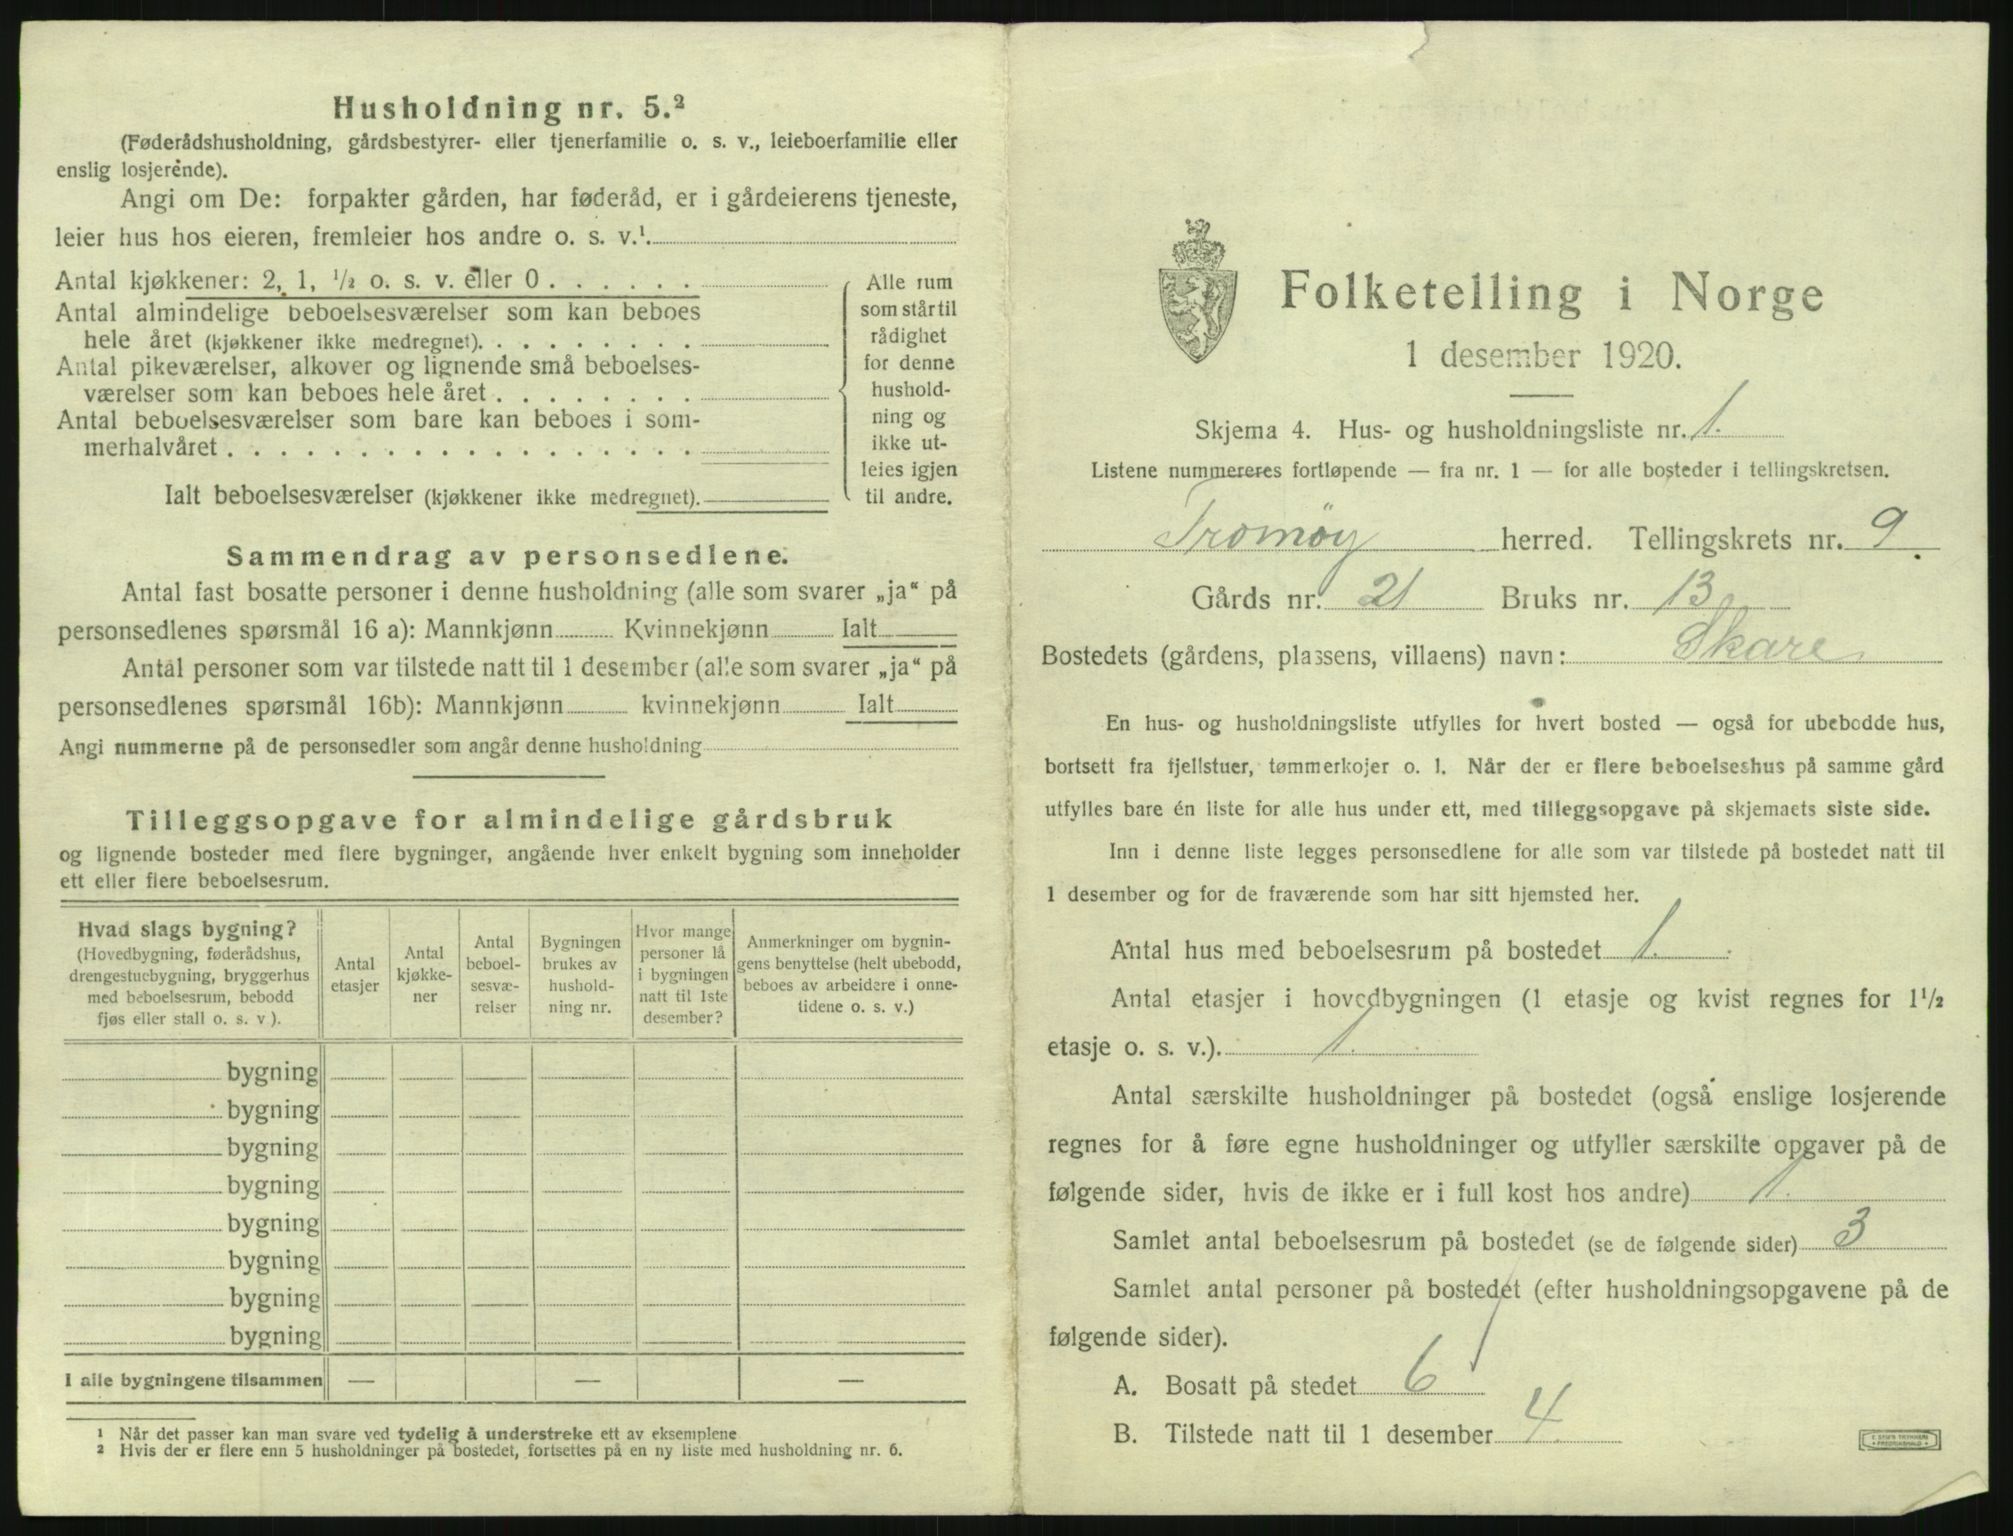 Husholdning nr. 5.²
(Føderådshusholdning, gårdsbestyrer- eller tjenerfamilie o. s. v., leieboerfamilie eller
enslig losjerende).
Angi om De: forpakter gården, har føderåd, er i gårdeierens tjeneste,
leier hus hos eieren, fremleier hos andre o. s. v.¹
Antal kjøkkener: 2, 1, ½ o. s. v. eller 0 . . . . . .
Antal almindelige beboelsesværelser som kan beboes
hele året (kjøkkener ikke medregnet). . . . . . . . .
Antal pikeværelser, alkover og lignende små beboelses-
værelser som kan beboes hele året . . . . . . . .
Antal beboelsesværelser som bare kan beboes i som-
merhalvåret . . . . . . . . . . . . . . . . . .
Ialt beboelsesværelser (kjøkkener ikke medregnet).
Alle rum
som står til
rådighet
for denne
hushold-
ning og
ikke ut-
leies igjen
til andre.
Sammendrag av personsedlene.
Antal fast bosatte personer i denne husholdning (alle som svarer „ja“ på
personsedlenes spørsmål 16 a): Mannkjønn Kvinnekjønn Ialt
Antal personer som var tilstede natt til 1 desember (alle som svarer „ja“ på
personsedlenes spørsmål 16b): Mannkjønn kvinnekjønn Ialt
Angi nummerne på de personsedler som angår denne husholdning
Tilleggsopgave for almindelige gårdsbruk
og lignende bosteder med flere bygninger, angående hver enkelt bygning som inneholder
ett eller flere beboelsesrum.
Hvad slags bygning?
(Hovedbygning, føderådshus,
drengestuebygning, bryggerhus
med beboelsesrum, bebodd
fjøs eller stall o. s. v ).
Antal
etasjer
Antal
kjøkke-
ner
Antal
beboel-
sesvæ-
relser
Bygningen
brukes av
hushold-
ning nr.
Hvor mange
personer lå
i bygningen
natt til 1ste
desember?
Anmerkninger om bygnin-
gens benyttelse (helt ubebodd,
beboes av arbeidere i onne-
tidene o. s. v.)
bygning
bygning
bygning
bygning
bygning
bygning
bygning
bygning
I alle bygningene tilsammen — — —
¹ Når det passer kan man svare ved tydelig å understreke ett av eksemplene
² Hvis der er flere enn 5 husholdninger på bostedet, fortsettes på en ny liste med husholdning nr. 6.
Folketelling i Norge
1 desember 1920.
Skjema 4. Hus- og husholdningsliste nr. 1.
Listene nummereres fortløpende — fra nr. 1 — for alle bosteder i tellingskretsen.
Tromøy herred. Tellingskrets nr. 9.
Gårds nr. 21 Bruks nr. 13
Bostedets (gårdens, plassens, villaens) navn: Skare
En hus- og husholdningsliste utfylles for hvert bosted — også for ubebodde hus,
bortsett fra fjellstuer, tømmerkojer o. l. Når der er flere beboelseshus på samme gård
utfylles bare én liste for alle hus under ett, med tilleggsopgave på skjemaets siste side.
Inn i denne liste legges personsedlene for alle som var tilstede på bostedet natt til
1 desember og for de fraværende som har sitt hjemsted her.
Antal hus med beboelsesrum på bostedet 1.
Antal etasjer i hovedbygningen (1 etasje og kvist regnes for 1½
etasje o. s. v.). 1.
Antal særskilte husholdninger på bostedet (også enslige losjerende
regnes for å føre egne husholdninger og utfyller særskilte opgaver på de
følgende sider, hvis de ikke er i full kost hos andre) 1.
Samlet antal beboelsesrum på bostedet (se de følgende sider) 3
Samlet antal personer på bostedet (efter husholdningsopgavene på de
følgende sider).
A. Bosatt på stedet 6
B. Tilstede natt til 1 desember 4